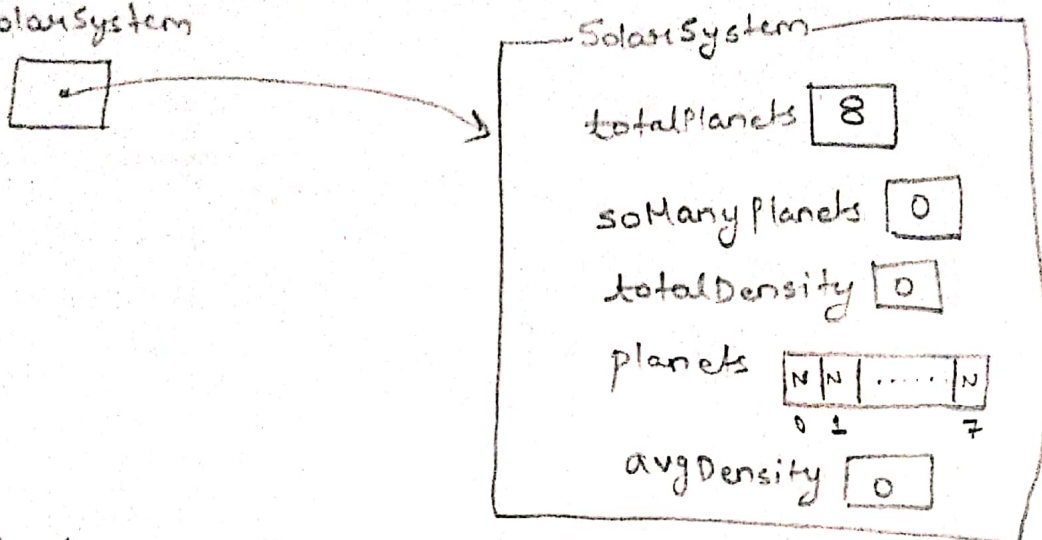 olarSystem
SolarSystem
totalPlanets 8
soManyPlanets 0
totalDensity 0
planets N N ...... N
0 1 7
avgDensity 0